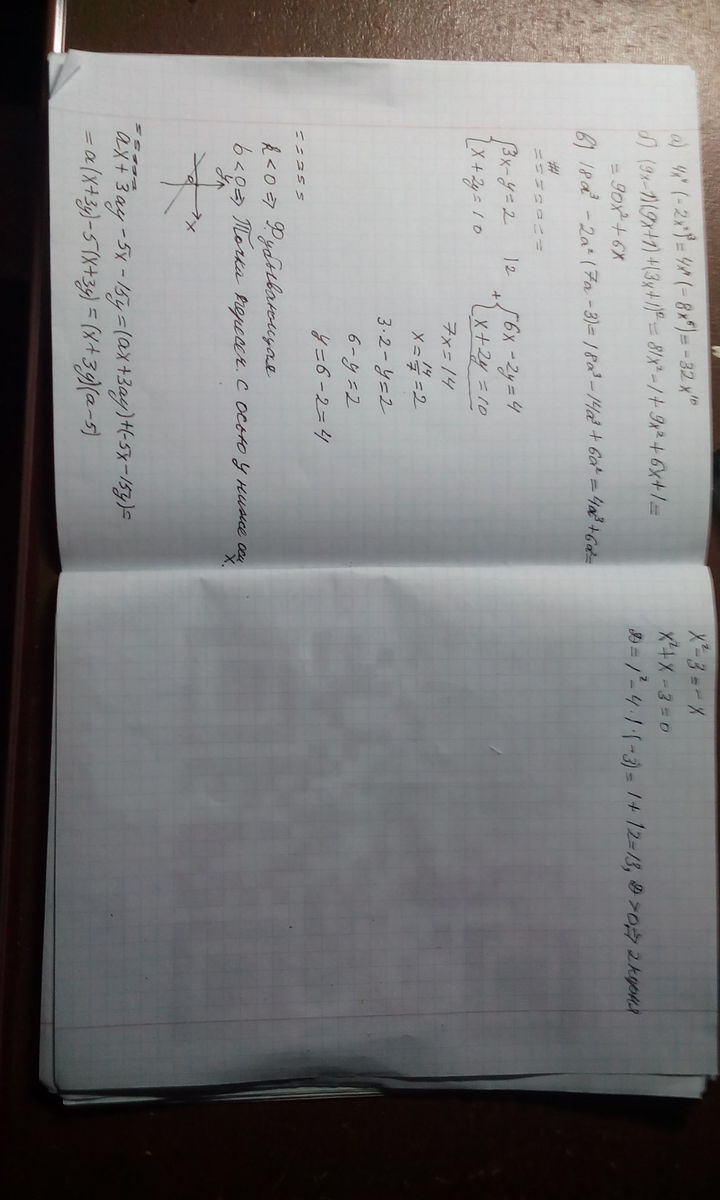 а) 4x⁴(-2x²)³ = 4x⁴(-8x⁶) = -32x¹⁰
б) (9x-1)(9x+1)+(3x+1)² = 81x²-1+9x²+6x+1=
= 90x²+6x
в) 18a³ - 2a²(7a-3) = 18a³-14a³+6a² = 4a³+6a²=
======
{3x-y=2 |2
{x+2y=10
+{6x-2y=4
{x+2y=10
7x=14
x=14/7=2
3·2-y=2
6-y=2
y=6-2=4
=====
k<0 ⇒ Ф. убывающая
b<0 ⇒ Точки перес. с осью y ниже оси x.
y
x
=====
ax+3ay-5x-15y=(ax+3ay)+(-5x-15y)=
=a(x+3y)-5(x+3y)=(x+3y)(a-5)
x²-3=-x
x²+x-3=0
D=1²-4·1·(-3)=1+12=13, D>0,⇒ 2 корня